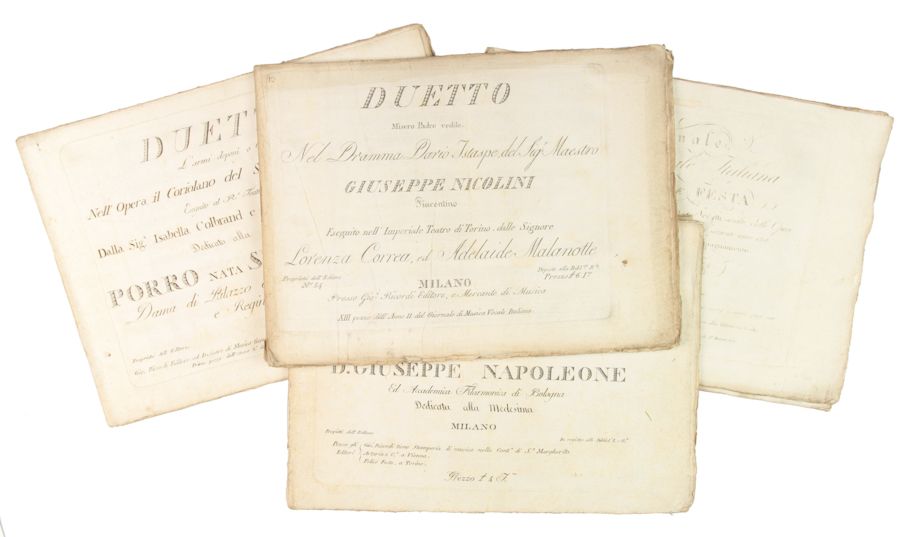 DUETTO
Misero Padre vedilo.
Nel Dramma Dario Istaspe del Sig.r Maestro
GIUSEPPE NICOLINI
Piacentino
Eseguito nell'Imperiale Teatro di Torino, dalle Signore
Lorenza Correa, ed Adelaide Malanotte
Proprietà dell'Editore
N.º 54
Prezzo £ 6.17
MILANO
Presso Gio. Ricordi Editore, e Mercante di Musica
XIII pezzo dell'Anno II del Giornale di Musica Vocale Italiana
DUET
L'armi deponi o
Nell'Opera il Coriolano del S
Eseguito al R.º Teatr
Dalla Sig.ª Isabella Colbrand e
Dedicato alla
PORRO NATA S
Dama di Palazzo
e Regin
Proprietà dell'Editore
Gio. Ricordi Editore ed Incisore di Musica
Italiana
FESTA
D. GIUSEPPE NAPOLEONE
Ed Accademica Filarmonica di Bologna
Dedicata alla Medesima
MILANO
Proprietà dell'Editore
Presso gli Editori
Gio. Ricordi tiene Stamperia di musica nella Cont.ª di S.ª Margherita
Artaria e C.º a Vienna.
Felice Festa, a Torino.
Prezzo